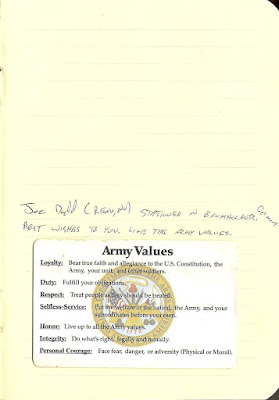 Joe Dodd (Reno, NV) STATIONED IN Germany
BEST WISHES TO YOU. LIVE THE ARMY VALUES.
Army Values
Loyalty: Bear true faith and allegiance to the U.S. Constitution, the
Army, your unit, and other soldiers.
Duty: Fulfill your obligations.
Respect: Treat people as they should be treated.
Selfless-Service: Put the welfare of the nation, the Army, and your
subordinates before your own.
Honor: Live up to all the Army values.
Integrity: Do what's right, legally and morally.
Personal Courage: Face fear, danger, or adversity (Physical or Moral).